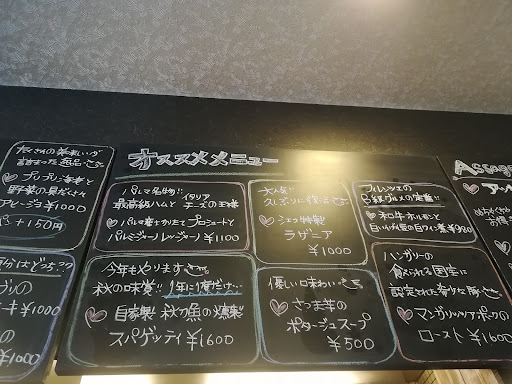 たくさんの美味いが
詰まった逸品
プリプリ海老と
野菜の具だくさん
アヒージョ ¥1000
パン +150円
はどっち??
¥1000
¥1000
オススメメニュー
パルマ名物!!
最高級ハムと イタリア
チーズの王様
パルマ産
プロシュートと
パルミジャーノレッジャーノ ¥1100
今年もやります
秋の味覚!! 1年に1度だけ…
自家製 秋の魚の燻製
スパゲッティ ¥1600
大人気!!
久しぶりに復活
シェフ特製
ラザニア
¥1000
優しい味わい
さつま芋の
ポタージュスープ
¥500
フィレンツェの
B級グルメの定番!!
和牛ホルモンと
白いんげん豆の白ワイン煮 ¥980
ハンガリーの
食べられる国宝に
認定された希少な豚
マンガリッツァポークの
ロースト ¥1600